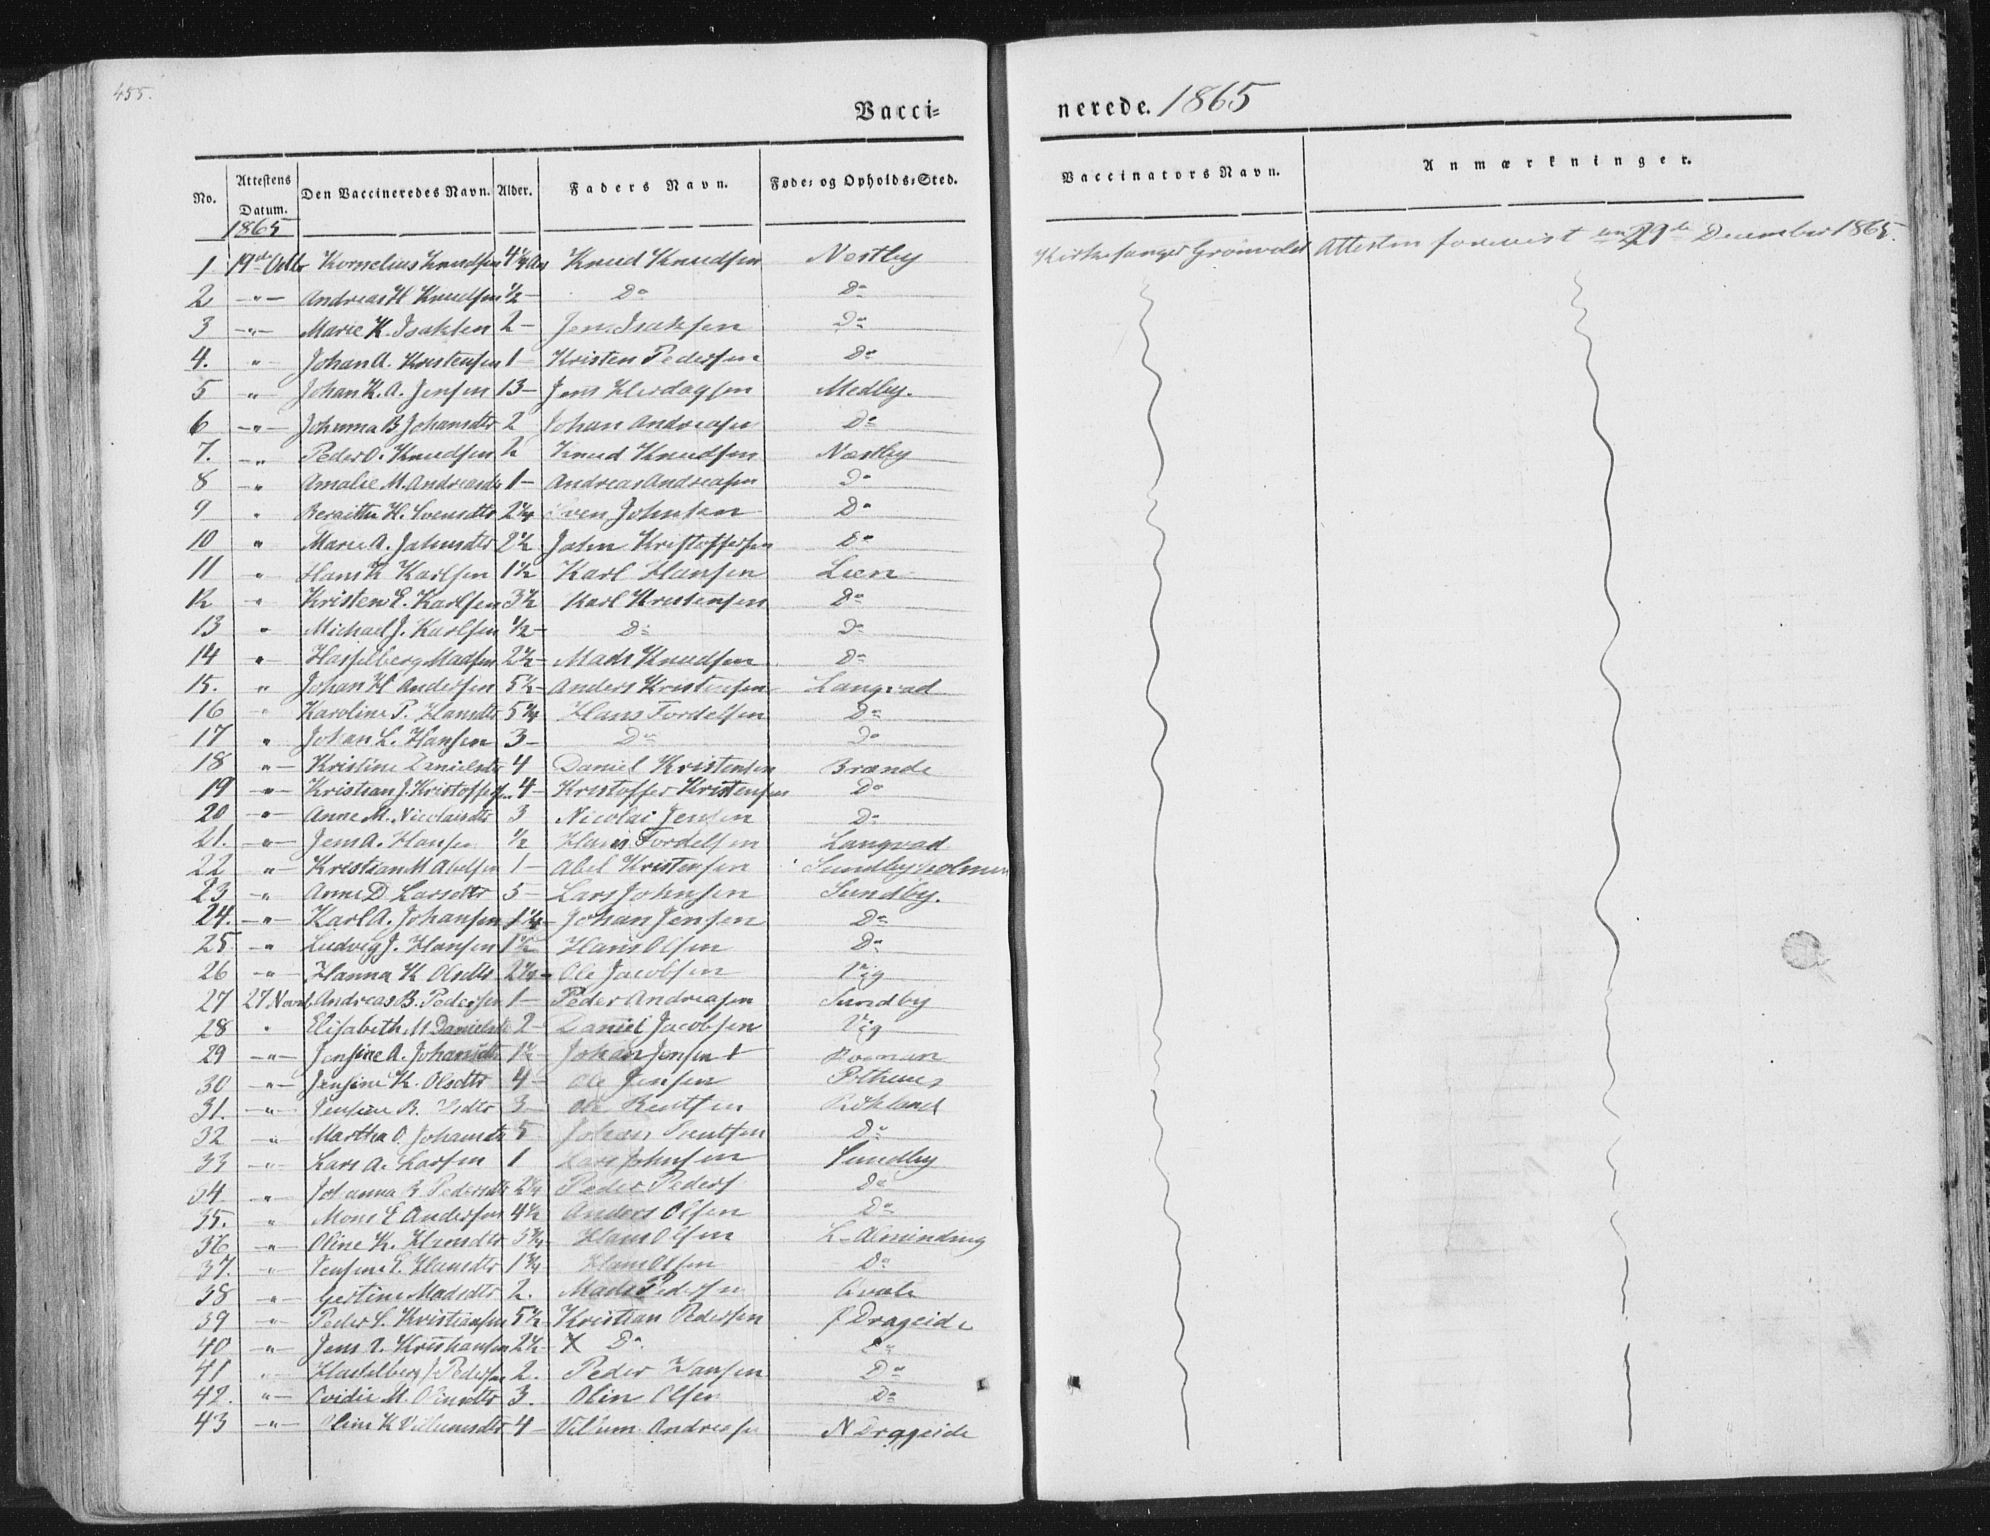 455.
Vacci-nerede. 1865
No. | Attestens Datum. | Den Vaccineredes Navn. | Alder. | Faders Navn. | Føde- og Opholds-Sted. | Vaccinators Navn. | Anmærkninger.
1865
1 19de Octbr Kornelius Knudsen 4 1/4 Aar Knud Knudsen Nestby Kirkesanger Grönvold Attesten foreviist 29de December 1865.
2 -"- Andreas H Knudsen 1/2 - Do Do
3 -"- Marie K. Isaksen 2 - Jens Isaksen Do
4. " Johan A. Kristensen 1 Kristen Pedersen Do
5 " Johan K. A. Jensen 13 - Jens Herdagsen Medby.
6 -"- Johanna B Johansdtr 2 Johan Andreasen Do
7. -" Peder O. Knudsen 2 Knud Knudsen Nestby
8 -" Amalie M. Andreasdtr 1 - Andreas Andreasen Do
9 " Beraitha H. Svensdtr 2 1/4 Sven Johnsen Do
10 " Marie A. Johnsdtr 2 1/2 John Kristoffersen Do
11 " Hans K Karlsen 1 1/2 Karl Hansen Lien
12 " Kristen E. Karlsen 3 1/2 Karl Kristensen Do
13 " Michael J. Karlsen 1/2 - Do Do
14 " Hasselberg Madsen 2 1/2 - Mads Knudsen Do
15. " Johan H Andersen 5 1/2 - Anders Kristensen Langvad
16 " Karoline P. Hansdtr 5 3/4 Hans Tordelsen Do
17 " Johan L. Hansen 3 - Do Do
18 "- Kristine Danielsdtr 4 Daniel Kristensen Brænde
19 -"- Kristian J. Kristoffers. 4 - Kristoffer Kristensen Do
20 -"- Anne M. Nicolaisdtr 3 Nicolai Jensen Do
21. -"- Jens A. Hansen 1/2 Hans Tordelsen Langvad
22 "- Kristian M Abelsen 1 - Abel Kristensen Sundbyholmen
23 -"- Anne D Larsdtr 5 - Lars Johnsen Sundby.
24. -"- Karl A. Johansen 1 1/4 - Johan Jensen Do
25 -" Ludvig J. Hansen 1 1/2 Hans Olsen Do
26 -"- Hanna K Olsdtr 2 1/4 - Ole Jacobsen Vig
27 27 Novb. Andreas B. Pedersen 1 - Peder Andreasen Sundby
28 " Elisabeth M Danielsdtr 2 - Daniel Jacobsen Vig
29 -"- Jensine A. Johansdtr 1 1/2 - Johan Jensen +
30 -"- Jensine K. Olsdtr 4 - Ole Jensen Pothuus
31. -"- Jensine B. 3 - Ole Bentsen Rökland
32 -"- Martha O. Johansdtr 5 Johan Do
33 -"- Lars A. Larsen 1 Lars Johnsen Sundby
34 -"- Johanna B Pedersdtr 2 1/4 Peder Peders Do
35. " Mons E Andersen 4 1/2 Anders Olsen Do
36 -"- Oline K. Hansdtr 5 3/4 Hans Olsen L. Almindning
37. -"- Jensine E. Hansdtr 1 3/4 Hans Olsen Do
38 -"- Gertine Madsdtr 2. Mads Pedersen
39 -"- Peder S. Kristiansen 5 1/2 Kristian Pedersen Drageide
40 -"- Jens Kristiansen 2 1/2 X Do Do
41 -"- Hasselberg J Pedersen 2. Peder Hansen Do
42. -"- Ovidie M. Olinsdtr 3. Olin Olsen Do
43 -"- Oline K Villumsdtr 4 - Villum Andreasen N Drageide